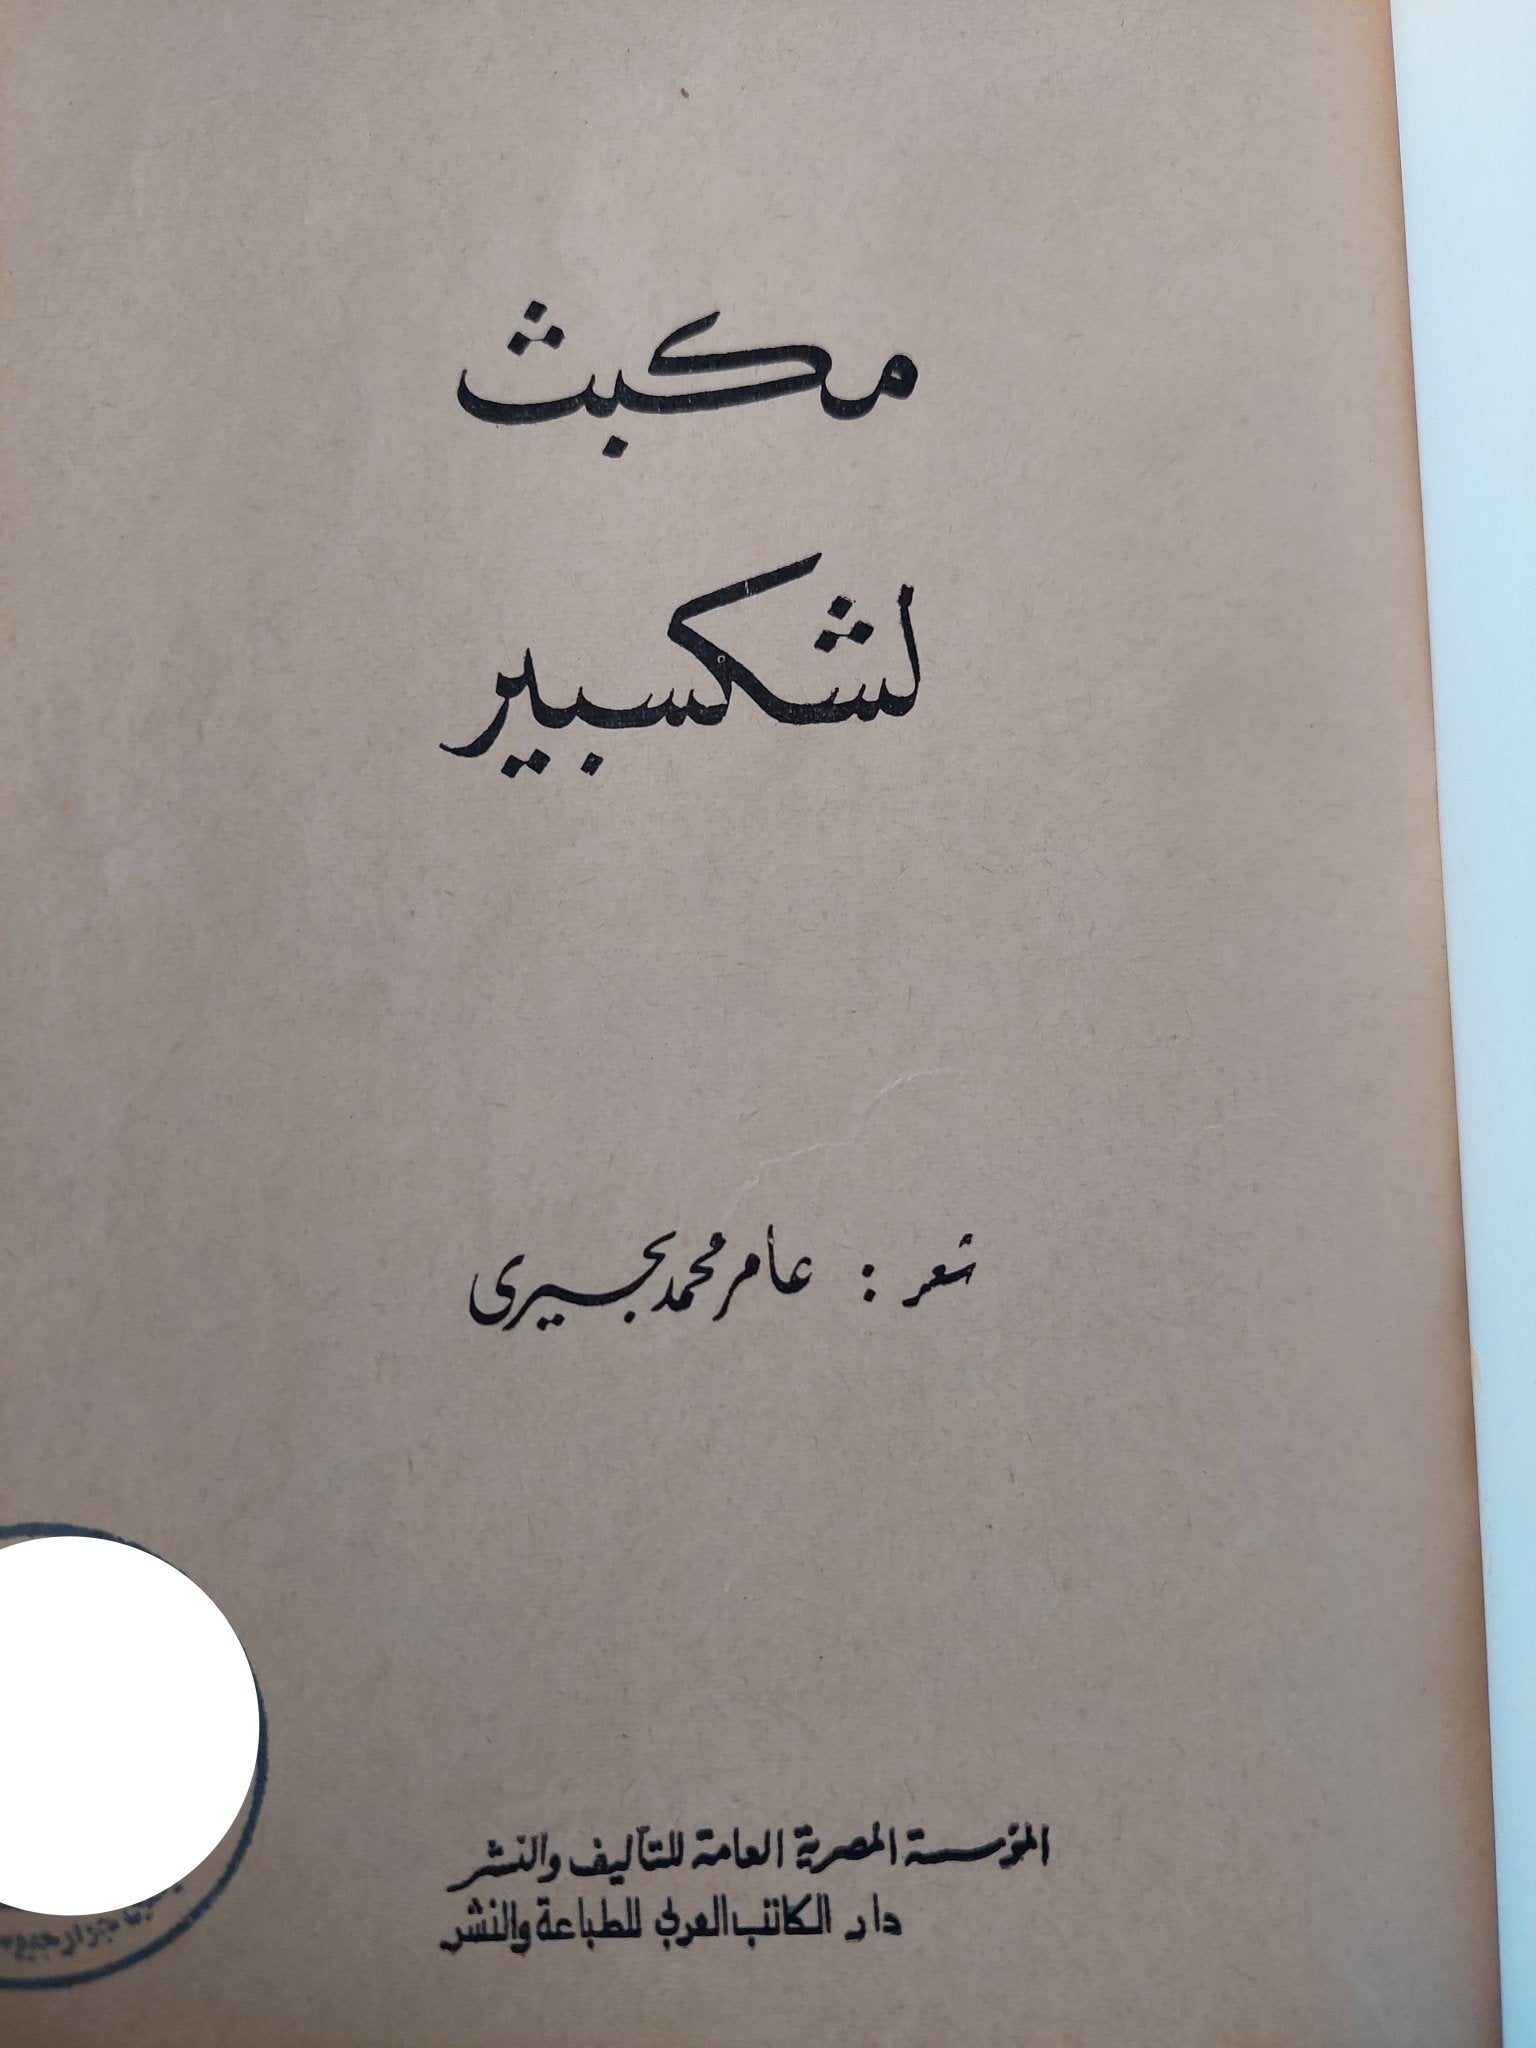 مكبث
لشكسبير
شعر : عامر محمد بحيرى
المؤسسة المصرية العامة للتأليف والنشر
دار الكاتب العربي للطباعة والنشر